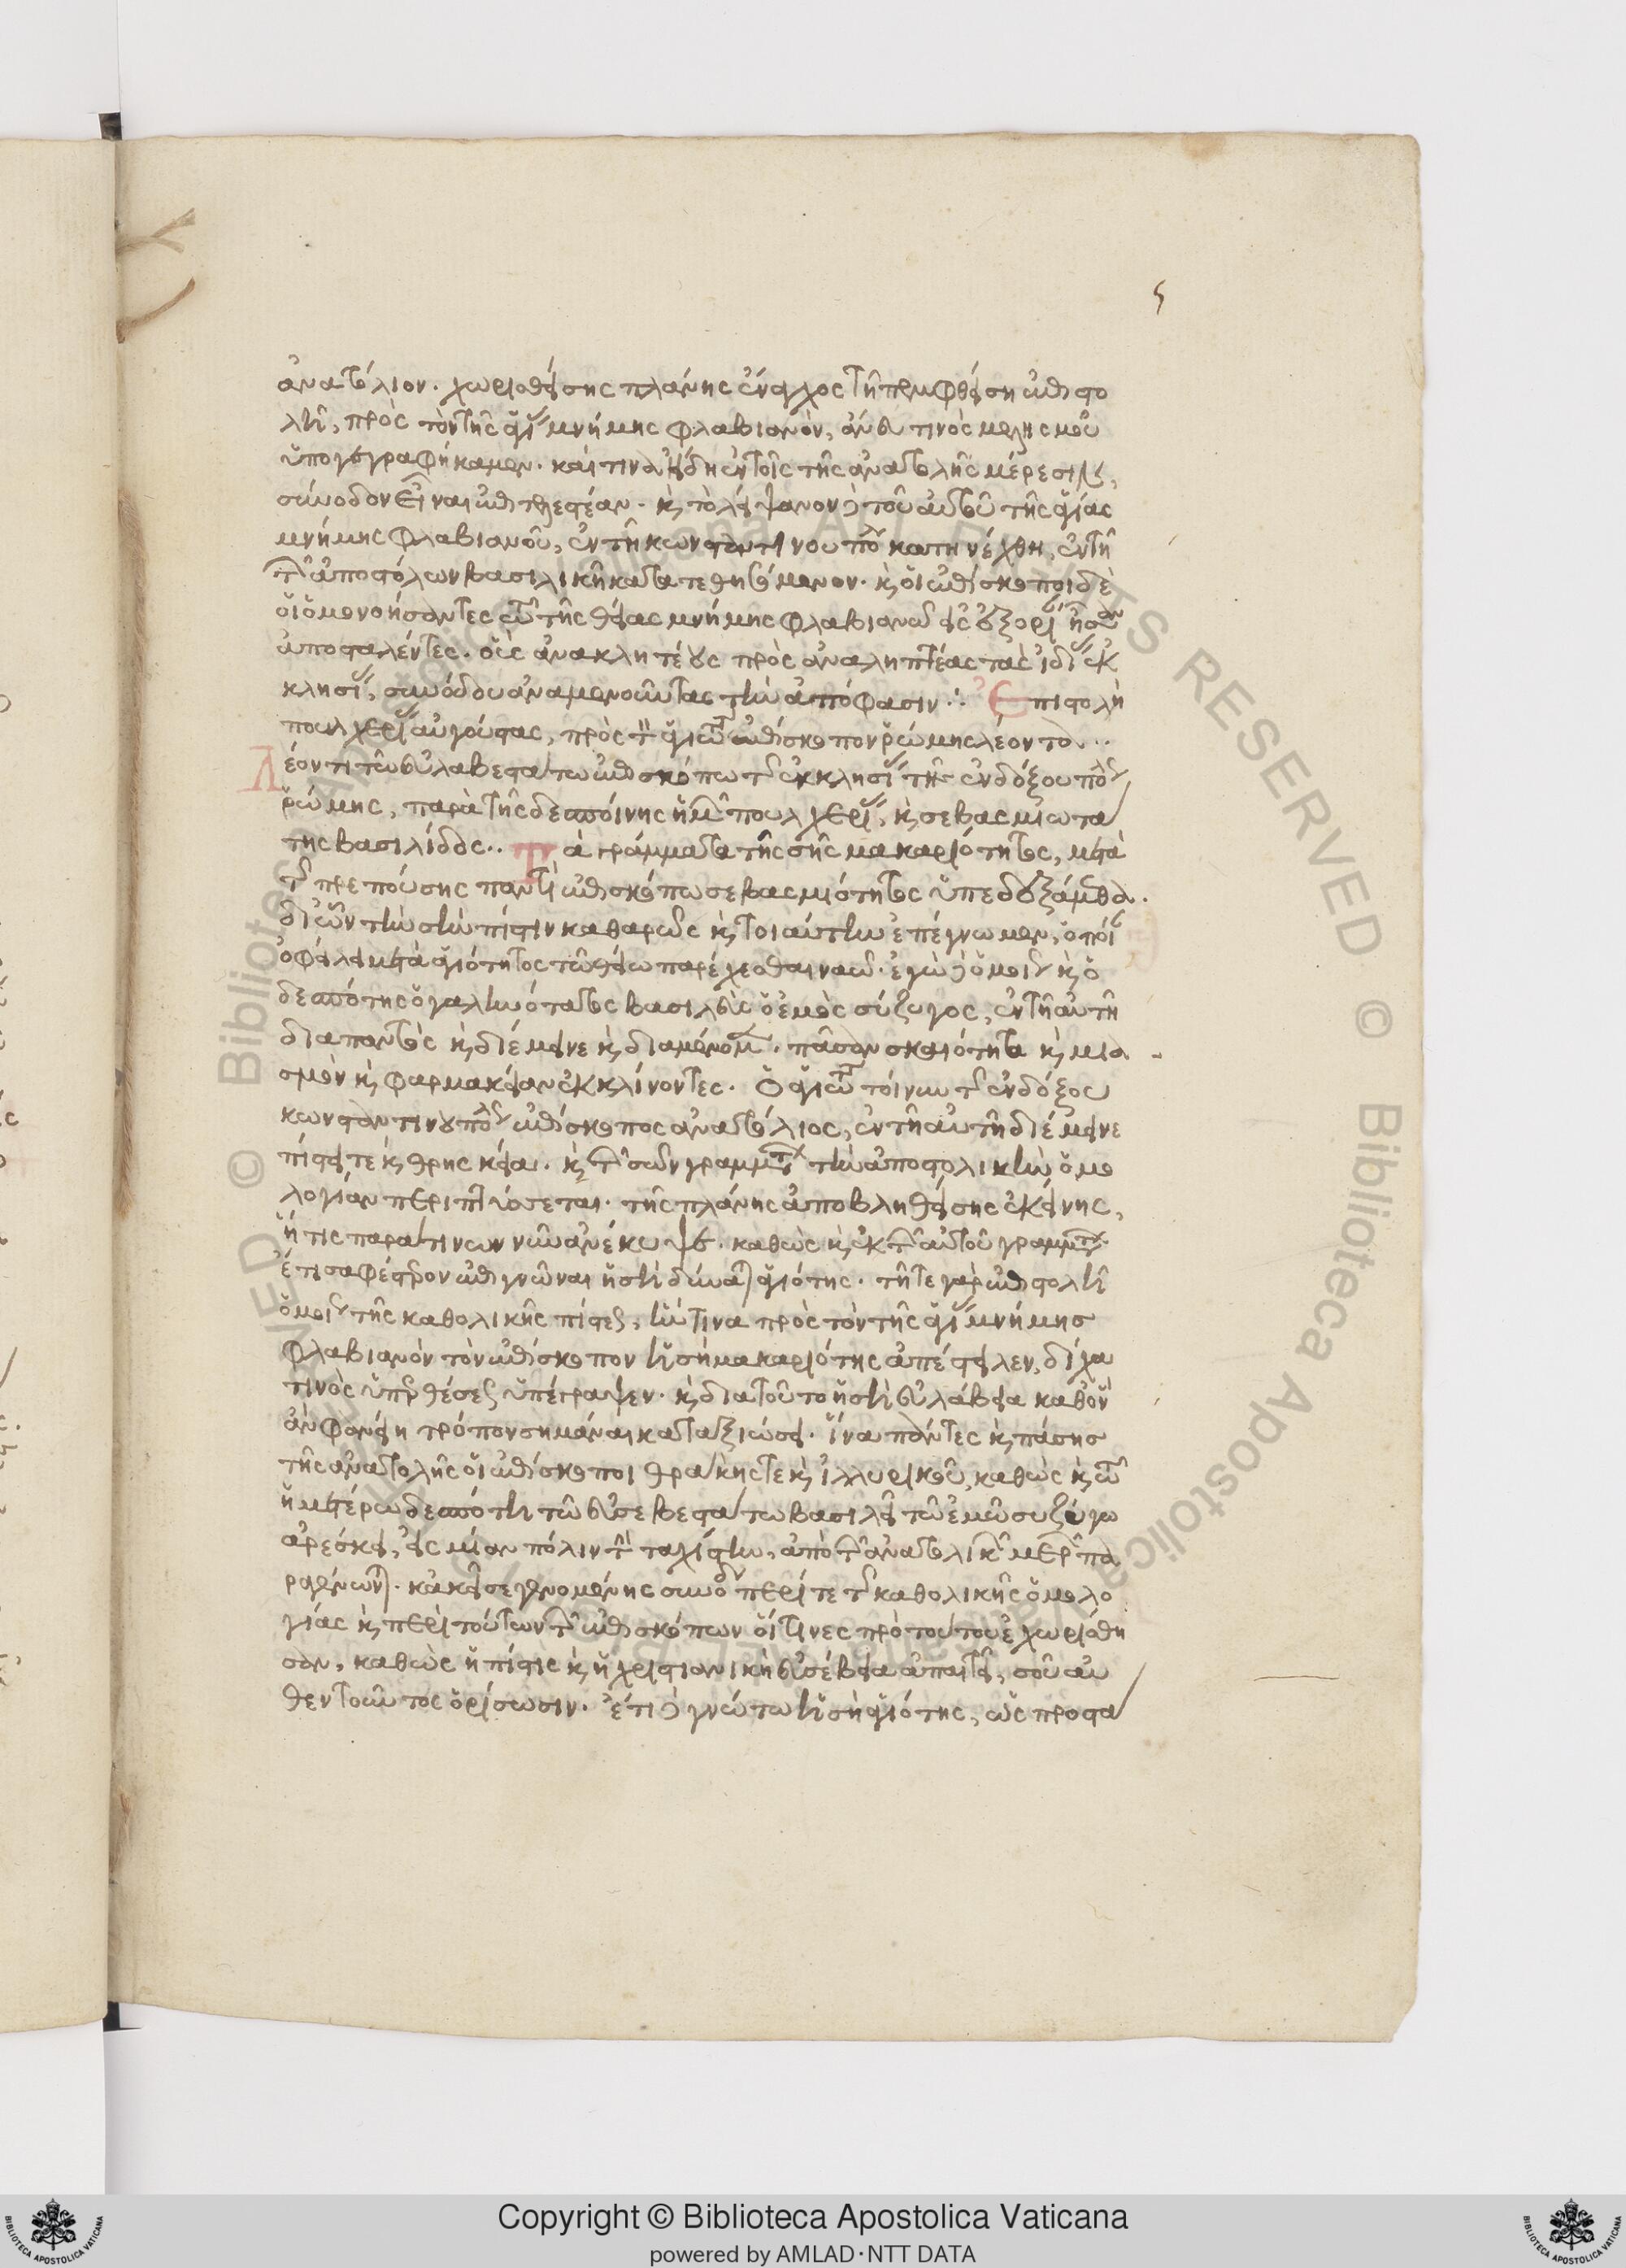 ς
ἀνατόλιον. χωρισθείσης πλάνης ἔναγχος τῇ πεμφθείσῃ ἐπιστο
λῇ, πρὸς τὸν τῆς ἁγί μνήμης φλαβιανὸν, ἄνευ τινὸς μελησμοῦ
ὑπογεγραφήκαμεν. καί τινα ἤδη ἐν τοῖς τῆς ἀνατολῆς μέρεσι,
σύνοδον εἶναι ἐπιτρεπτέαν. κ τὸ λείψανον δὲ τοῦ αὐτοῦ τῆς ἁγίας
μνήμης φλαβιανοῦ, ἐν τῇ κωνσταντινουπολ κατηνέχθη, ἐν τῇ
τῶν ἀποστόλων βασιλικῇ κατατεθησόμενον. κ οἱ ἐπίσκοποι δὲ
οἱ ὁμονοήσαντες τῷ τῆς θείας μνήμης φλαβιανῶ εἰς ἐξορί ἦσαν
ἀποσταλέντες. οὓς ἀνακλητέους πρὸς ἀναληπτέας τὰς ἰδί ἐκ
κλησί, συνόδου ἀναμενοῦντας τὴν ἀπόφασιν ∴ Επιστολὴ
πουλχερί αὐγούστας, πρὸς τὸν ἁγιωτ ἐπίσκοπον ῥώμης λέοντα ..
Λέοντι τῷ εὐλαβεστάτω ἐπισκόπω τῆς ἐκκλησί τῆς ἐνδόξου πόλ
ῥώμης, παρὰ τῆς δεσποίνης ἡμῶν πουλχερί, κ σεβασμιωτά
της βασιλίδος .. Τὰ γράμματα τῆς σῆς μακαριότητος, μετὰ
τῆς πρεπούσης παντὶ ἐπισκόπω σεβασμιότητος ὑπεδεξάμεθα.
δι ὧν τὴν σὴν πίστιν καθαρῶς κ τοιαύτην ἐπέγνωμεν, ὁποί
ὀφείλει μετὰ ἁγιότητος τῷ θείω παρέχεσθαι ναῷ. ἐγὼ δὲ ὁμοί κ ὁ
δεσπότης ὁ γαληνότατος βασιλεὺς ὁ ἐμὸς σύζυγος, ἐν τῇ αὐτῇ
διαπαντὸς κ διέμεινε κ διαμένομ. πᾶσαν σκαιότητα κ μια
σμὸν κ φαρμακείαν ἐκκλίνοντες. Ὁ ἁγιωτ τοίνυν τῆς ἐνδόξου
κωνσταντινουπολ ἐπίσκοπος ἀνατόλιος, ἐν τῇ αὐτῇ διέμεινε
πίστει τε κ θρησκεία. κ τῶν σῶν γραμμτ τὴν ἀποστολικὴν ὁμο
λογίαν περιπτύσσεται. τῆς πλάνης ἀποβληθείσης ἐκείνης,
ἥτις παρά τινων νῦν ἀνέκυψε. καθὼς κ ἐκ τῶν αὐτοῦ γραμμτ
ἔτι σαφέστερον ἐπιγνῶναι ἡ σὴ δύναται ἁγιότης. τῇ τε γὰρ ἐπιστολῇ
ὁμοί τῆς καθολικῆς πίστεως, ἥντινα πρὸς τὸν τῆς ἁγί μνήμης
φλαβιανὸν τὸν ἐπίσκοπον ἡ σὴ μακαριότης ἀπέστειλεν, δίχα
τινὸς ὑπερθέσεως ὑπέγραψεν. κ διατοῦτο ἡ σὴ εὐλάβεια καθ ὃν
ἂν φανείη τρόπον σημάναι καταξιώσει. ἵνα πάντες κ πάσης
τῆς ἀνατολῆς οἱ ἐπίσκοποι θράκης τε κ ἰλλυρικοῦ, καθὼς κ τῷ
ἡμετέρω δεσπότη τῷ εὐσεβεστάτω βασιλεῖ τῷ ἐμῷ συζύγω
ἀρέσκει, εἰς μίαν πόλιν τὴν ταχίστην, ἀπὸ τῶν ἀνατολικ μερ πα
ραγένωνται. κἀκεῖσε γενομένης συνόδ περί τε τῆς καθολικῆς ὁμολο
γίας κ περὶ τούτων τῶν ἐπισκόπων οἵτινες πρὸ τούτου ἐχωρίσθη
σαν, καθὼς ἡ πίστις κ ἡ χριστιανικὴ εὐσέβεια ἀπαιτεῖ, σοῦ αὐ
θεντοῦντος ὁρίσωσιν. ἔτι δὲ γνώτω ἡ σὴ ἁγιότης, ὡς προστά
Copyright © Biblioteca Apostolica Vaticana
powered by AMLAD·NTT DATA